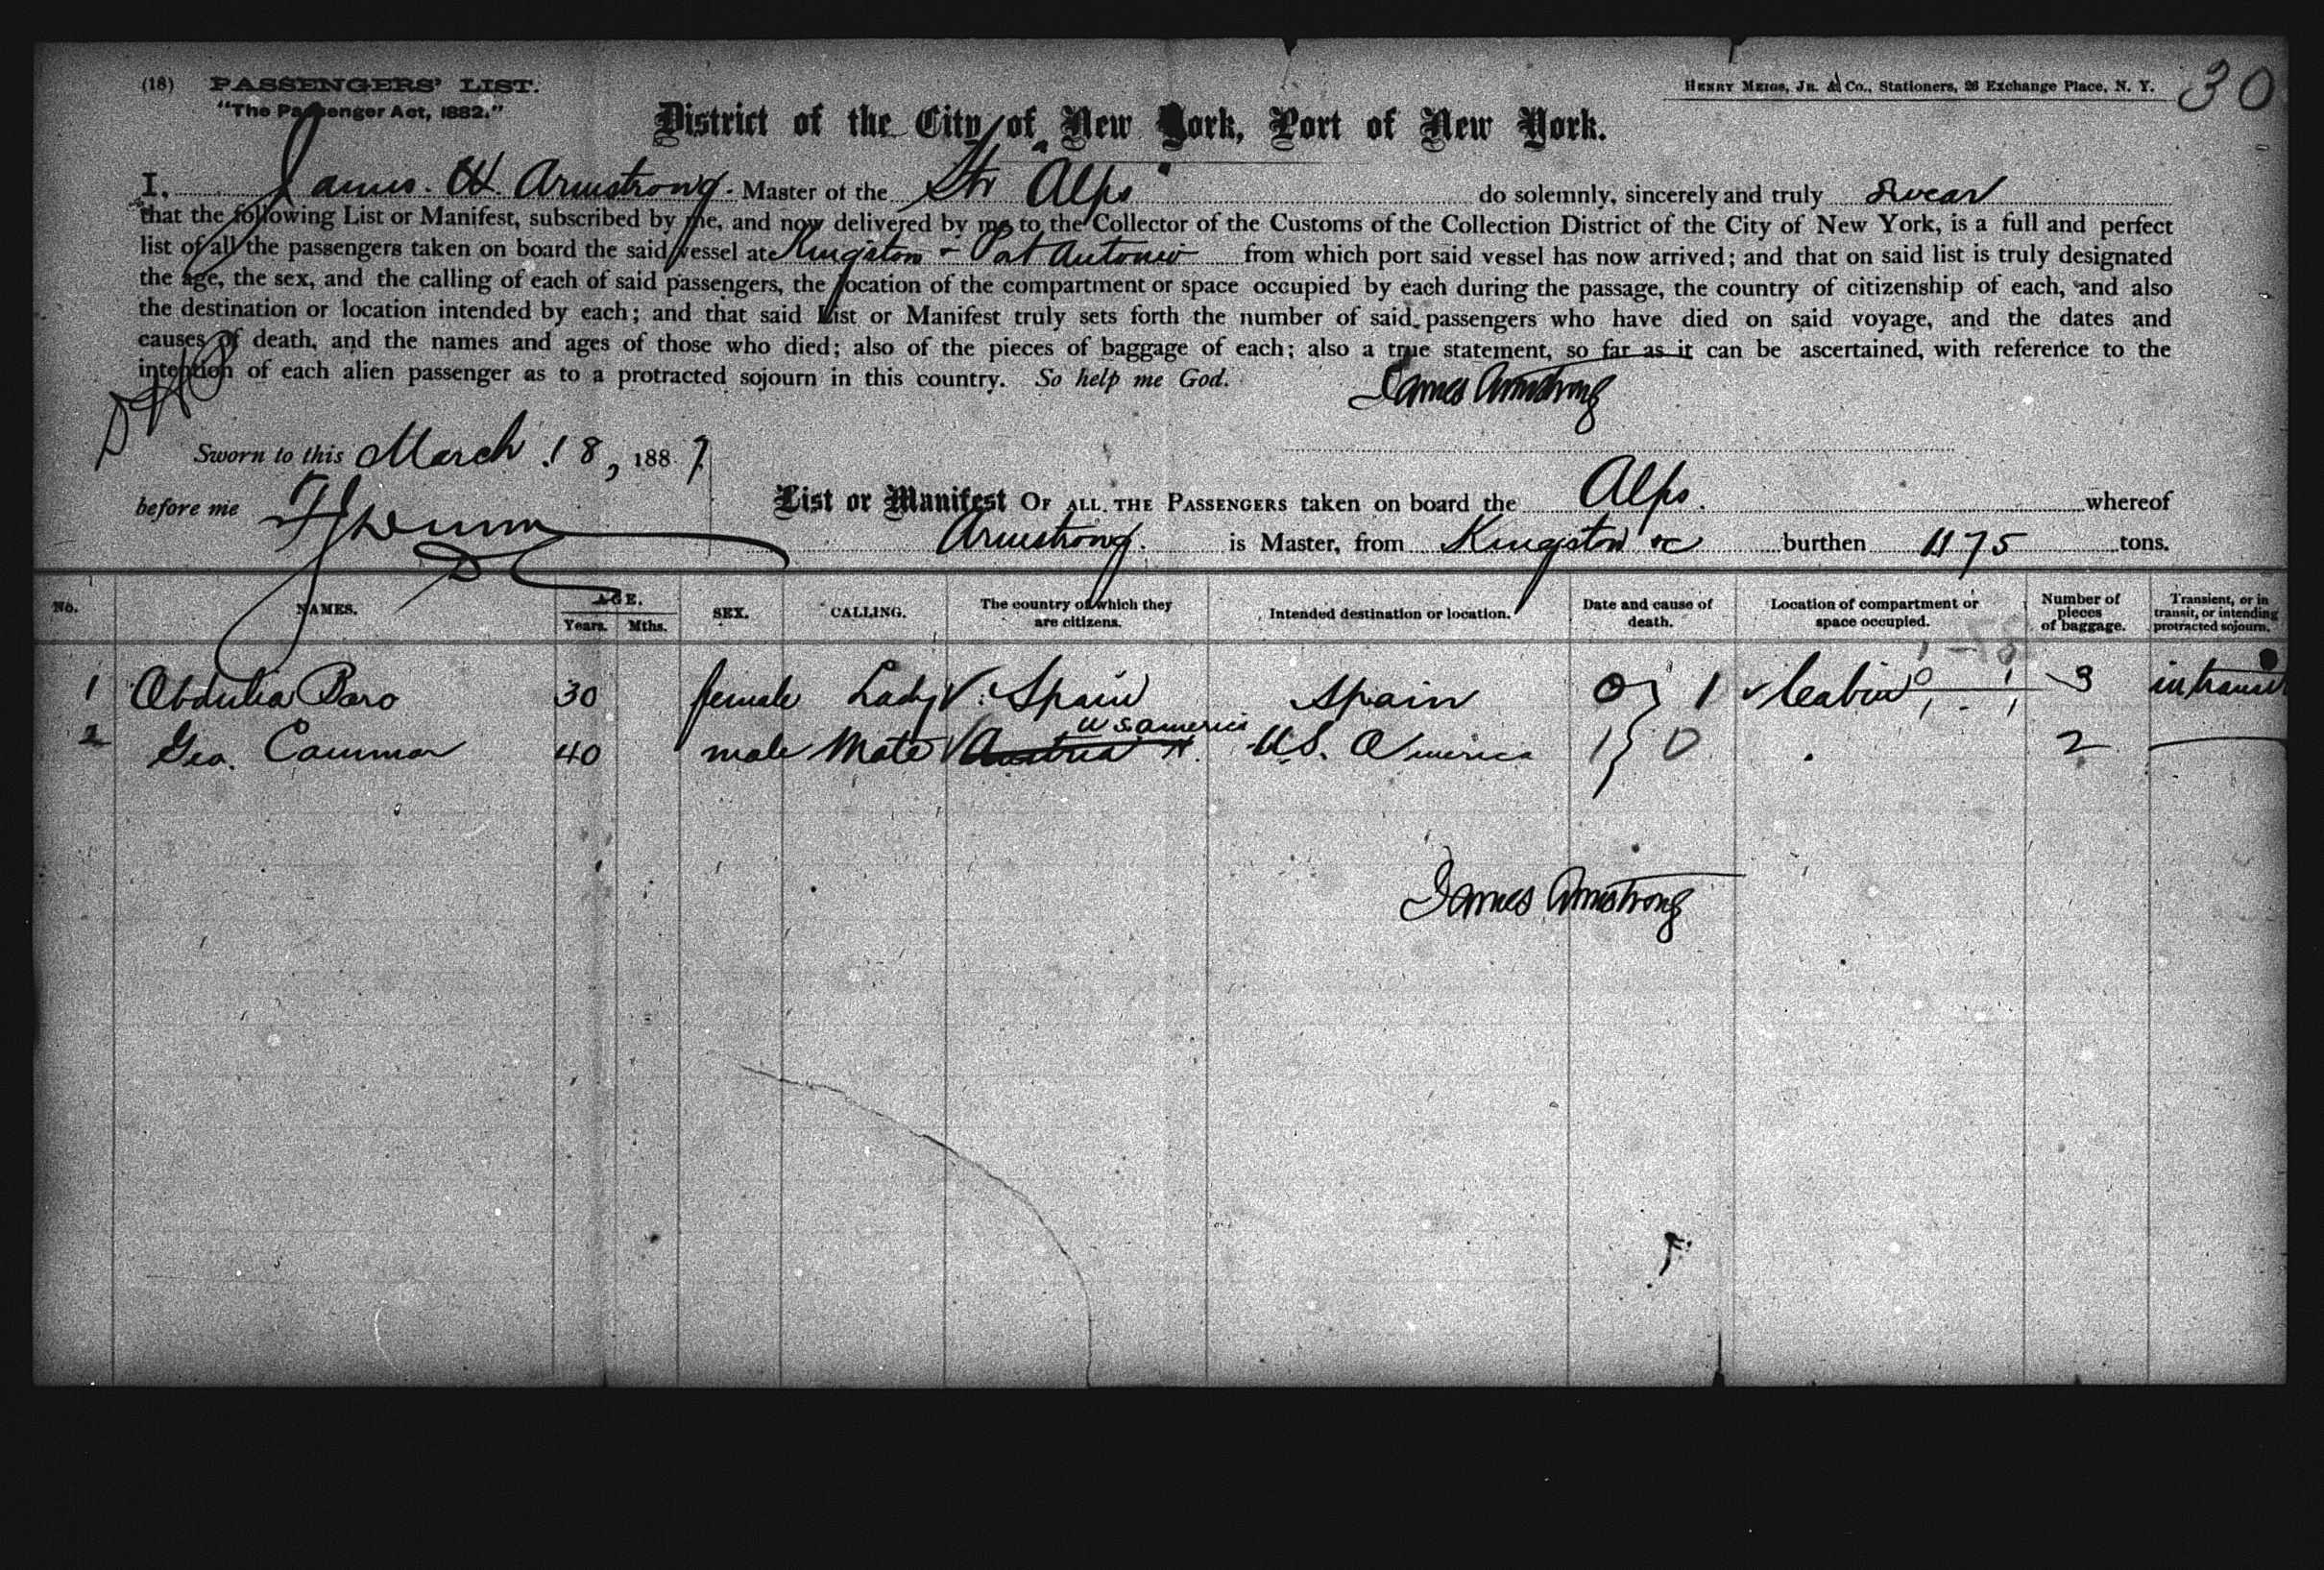 (18) PASSENGERS' LIST.
"The Passenger Act, 1882."
HENRY MEIGS, JR. & Co., Stationers, 26 Exchange Place, N. Y.
30
District of the City of New York, Port of New York.
I, James. W. Armstrong. Master of the Str "Alps" do solemnly, sincerely and truly swear
that the following List or Manifest, subscribed by me, and now delivered by me to the Collector of the Customs of the Collection District of the City of New York, is a full and perfect
list of all the passengers taken on board the said vessel at Kingston & Port Antonio from which port said vessel has now arrived; and that on said list is truly designated
the age, the sex, and the calling of each of said passengers, the location of the compartment or space occupied by each during the passage, the country of citizenship of each, and also
the destination or location intended by each; and that said List or Manifest truly sets forth the number of said passengers who have died on said voyage, and the dates and
causes of death, and the names and ages of those who died; also of the pieces of baggage of each; also a true statement, so far as it can be ascertained, with reference to the
intention of each alien passenger as to a protracted sojourn in this country. So help me God.
James Armstrong
Sworn to this March 18, 1887
before me
List or Manifest OF ALL THE PASSENGERS taken on board the Alps. whereof
Armstrong. is Master, from Kingston &c burthen 1175 tons.
No. NAMES. AGE. Years. Mths. SEX. CALLING. The country of which they are citizens. Intended destination or location. Date and cause of death. Location of compartment or space occupied. Number of pieces of baggage. Transient, or in transit, or intending protracted sojourn.
1 Obdulia Paro 30 female Lady √ Spain Spain 0} 1 Cabin 3 in transit
U S America
2 Geo. 40 male Mate √ Austria U.S. America 1} 0 2
James Armstrong